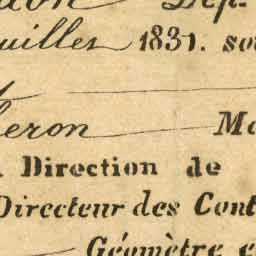 Dép.
uilles 1831. so
eron Ma
Direction de
Directeur des Cont
Géomètre e